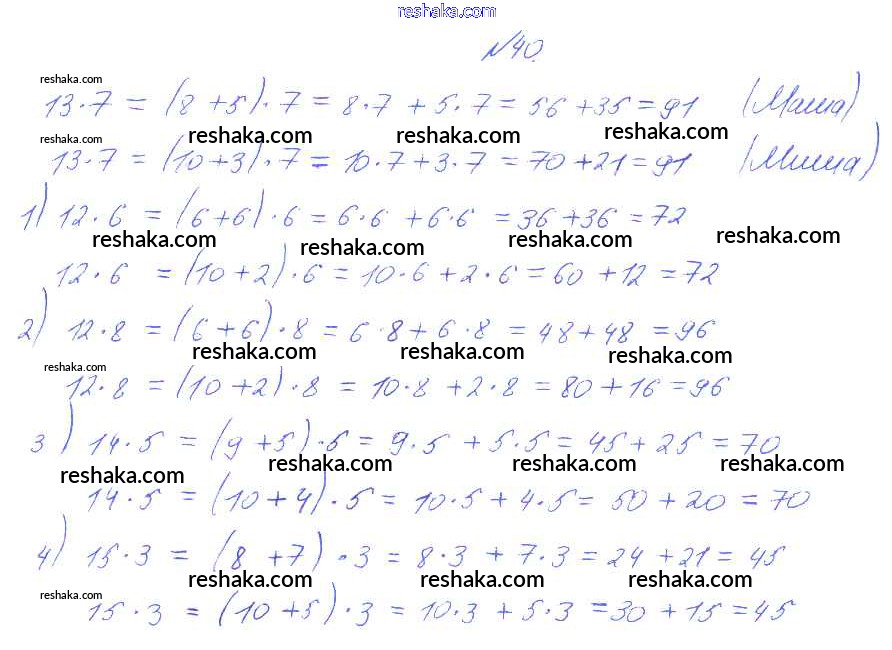 reshaka.com
№40.
reshaka.com
13·7 = (8+5)·7 = 8·7 + 5·7 = 56+35=91 (Маша)
reshaka.com reshaka.com reshaka.com reshaka.com
13·7 = (10+3)·7 = 10·7+3·7 = 70+21=91 (Миша)
1) 12·6 = (6+6)·6 = 6·6 + 6·6 = 36+36=72
reshaka.com reshaka.com reshaka.com reshaka.com
12·6 = (10+2)·6 = 10·6+2·6=60+12=72
2) 12·8 = (6+6)·8 = 6·8+6·8 = 48+48=96
reshaka.com reshaka.com reshaka.com reshaka.com
12·8 = (10+2)·8 = 10·8+2·8=80+16=96
3) 14·5 = (9+5)·5= 9·5 + 5·5= 45+25=70
reshaka.com reshaka.com reshaka.com reshaka.com
14·5 = (10+4)·5= 10·5+4·5= 50+20=70
4) 15·3 = (8+7)·3 = 8·3 + 7·3=24+21=45
reshaka.com reshaka.com reshaka.com reshaka.com
15·3 = (10+5)·3 = 10·3+5·3=30+15=45